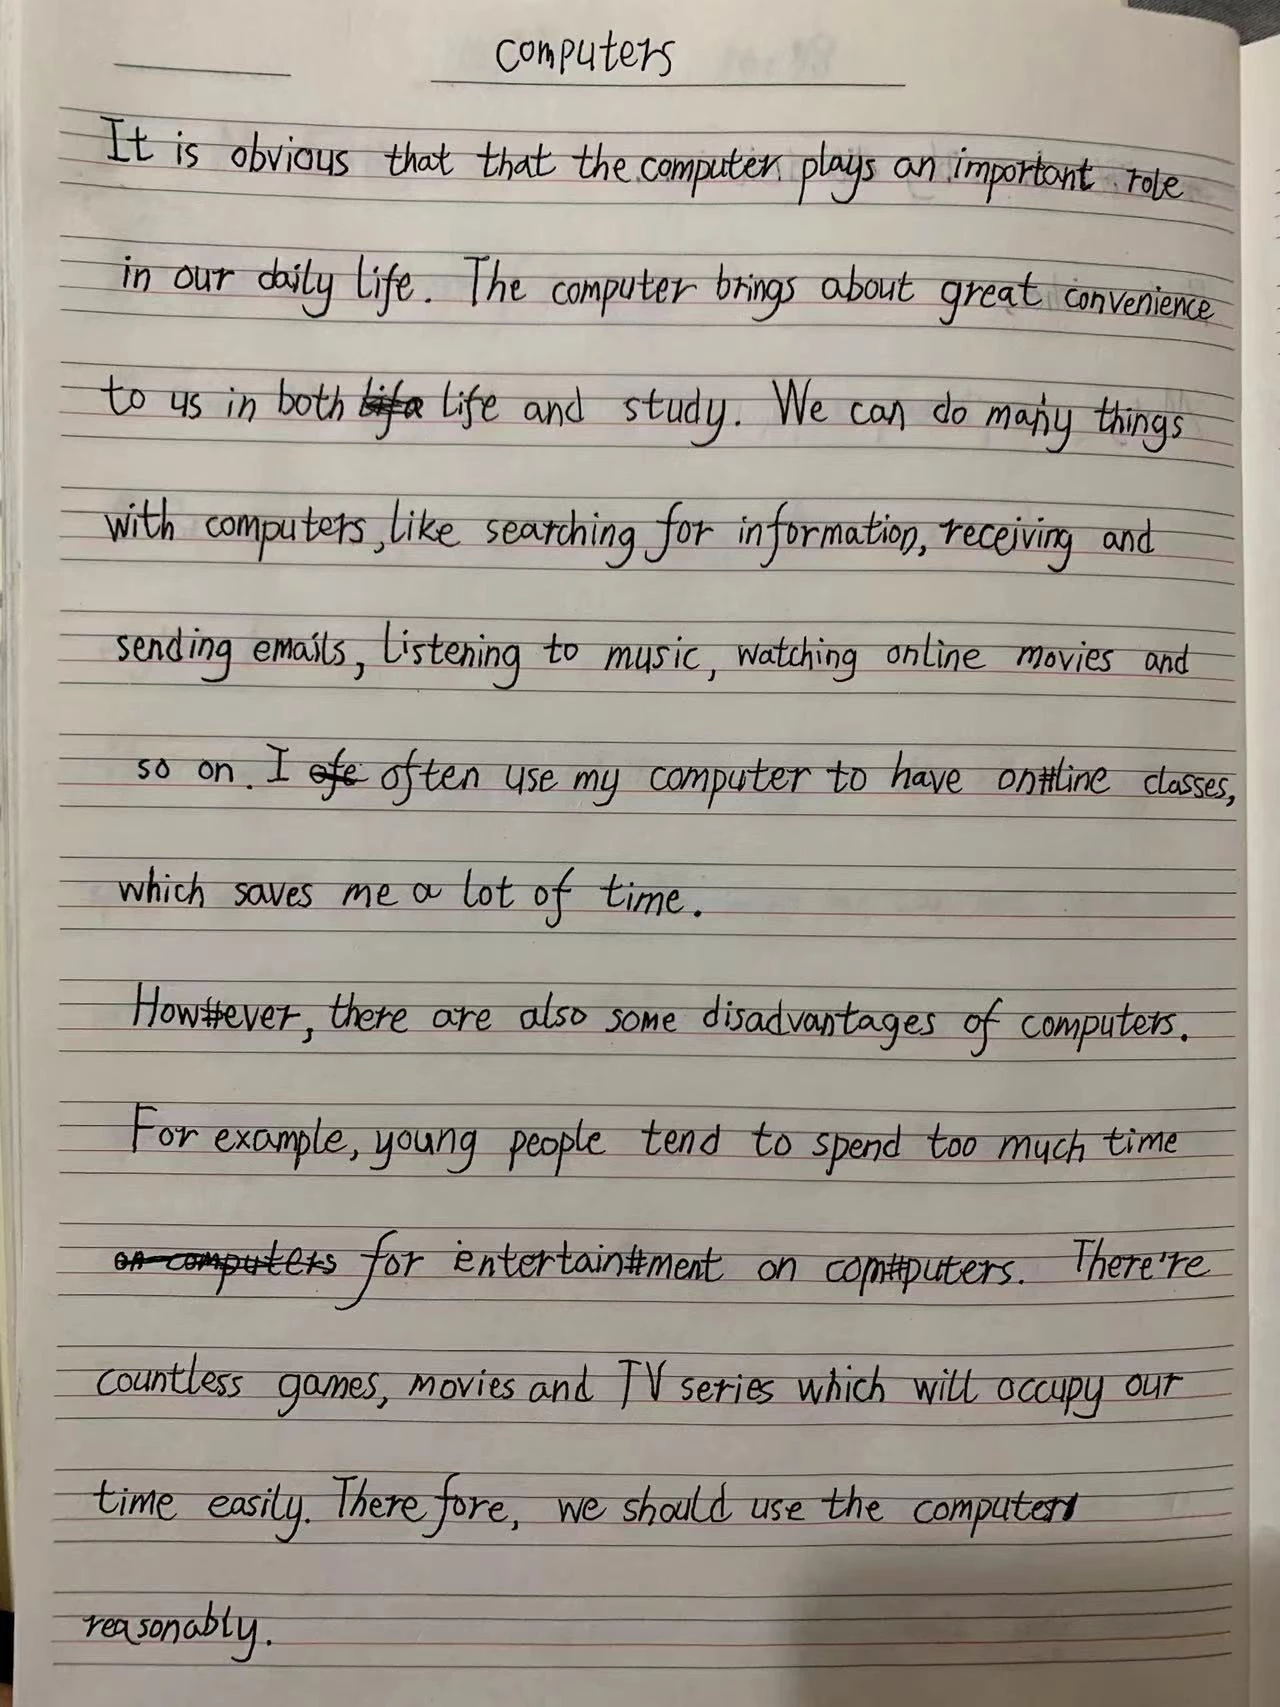 computers
It is obvious that that the computer plays an important role
in our daily life. The computer brings about great convenience
to us in both life and study. We can do many things
with computers, like searching for information, receiving and
sending emails, listening to music, watching online movies and
so on. I often use my computer to have online classes,
which saves me a lot of time.
However, there are also some disadvantages of computers.
For example, young people tend to spend too much time
for entertainment on computers. There're
countless games, movies and TV series which will occupy our
time easily. Therefore, we should use the computer
reasonably.